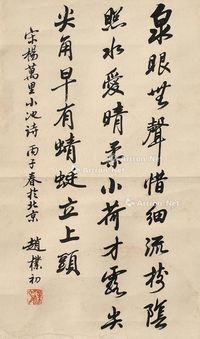 泉眼無聲惜細流樹陰
照水愛晴柔小荷才露尖
尖角早有蜻蜓立上頭
宋楊萬里小池詩 丙子春於北京
趙樸初